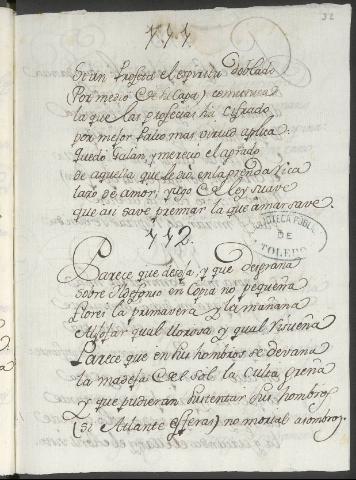 32
111.
Si un Profeta el espiritu doblado
(Por medio de su Capa) comunica
la que las profecias ha cifrado
por mejor Palio mas virtud aplica.
Quedò Galan, y mereciò el agrado
de aquella que le diò en la prenda rica
lazo de amor, yugo de ley suave
que assi save premiar la que amar save.
112.
Parece que deseja, y que
sobre Ildefonso en Copia no pequeña
flores la primavera y la mañana
Aljofar qual llorosa y qual risueña
Parece que en sus hombros se devana
la madeja del sol la culta greña
Y que pudieran sustentar sus hombros
(si Atlante esferas) no mortal asombros.
BIBLIOTECA PUBLICA
DE
TOLEDO